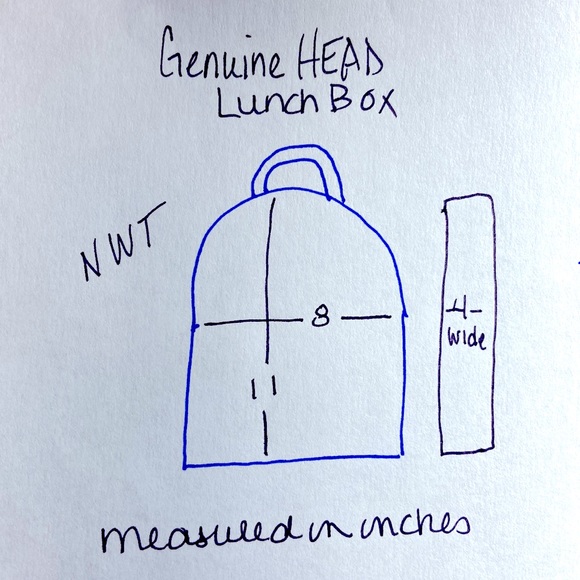 Genuine HEAD
Lunch Box
NWT
8
4-
wide
11
measured in inches